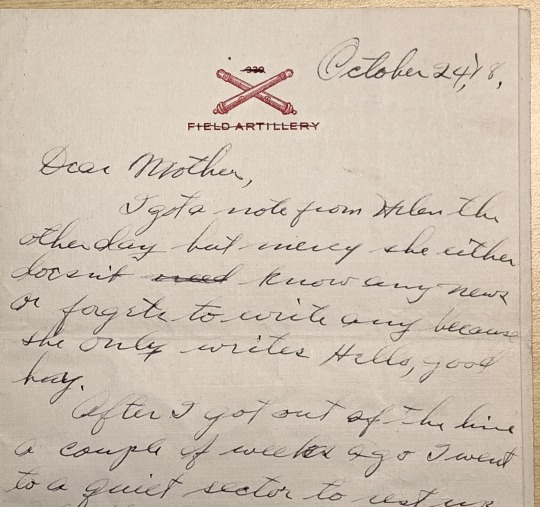 330
October 24, '18,
FIELD ARTILLERY
Dear Mother,
I got a note from Helen the
other day but mercy she either
doesn't need know any news
or forgets to write any because
she only writes Hello, good
buy.
After I got out of the line
a couple of weeks ago I went
to a quiet sector to rest up